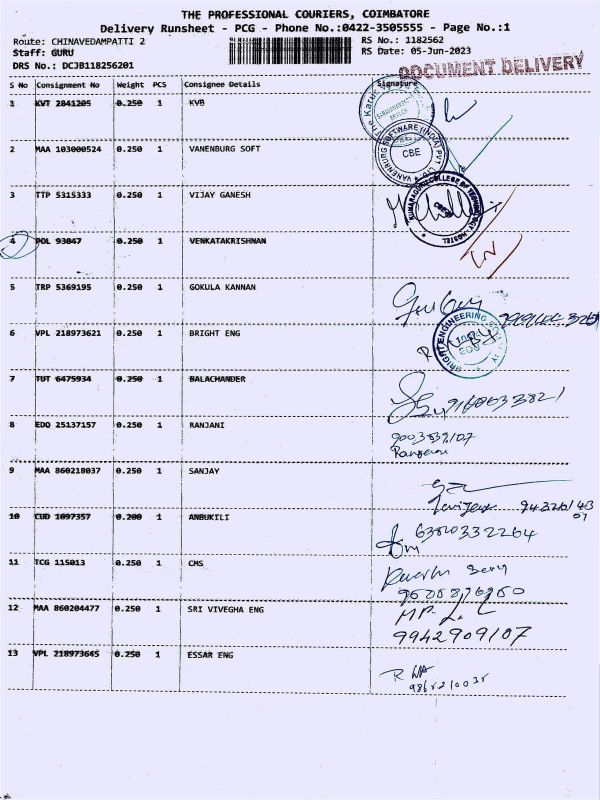 THE PROFESSIONAL COURIERS, COIMBATORE
Delivery Runsheet - PCG - Phone No.:0422-3505555 - Page No.:1
Route: CHINAVEDAMPATTI 2 RS No.: 1182562
Staff: GURU RS Date: 05-Jun-2023
DRS No.: DCJB118256201 DOCUMENT DELIVERY
S No Consignment No Weight PCS Consignee Details Signature
1 KVT 2841205 0.250 1 KVB
2 MAA 103000524 0.250 1 VANENBURG SOFT
VANENBURG SOFTWARE (INDIA) PVT. LTD. CBE
3 TTP 5315333 0.250 1 VIJAY GANESH
KUMARAGURU COLLEGE OF TECHNOLOGY - HOSTEL
4 POL 93047 0.250 1 VENKATAKRISHNAN
5 TRP 5369195 0.250 1 GOKULA KANNAN
6 VPL 218973621 0.250 1 BRIGHT ENG
BRIGHT ENGINEERING
7 TUT 6475934 0.250 1 BALACHANDER
8 EDQ 25137157 0.250 1 RANJANI
Ranjani
9 MAA 860218037 0.250 1 SANJAY
10 CUD 1097357 0.200 1 ANBUKILI
6380332264
11 TCG 115013 0.250 1 CMS
12 MAA 860204477 0.250 1 SRI VIVEGHA ENG
9942909107
13 VPL 218973645 0.250 1 ESSAR ENG